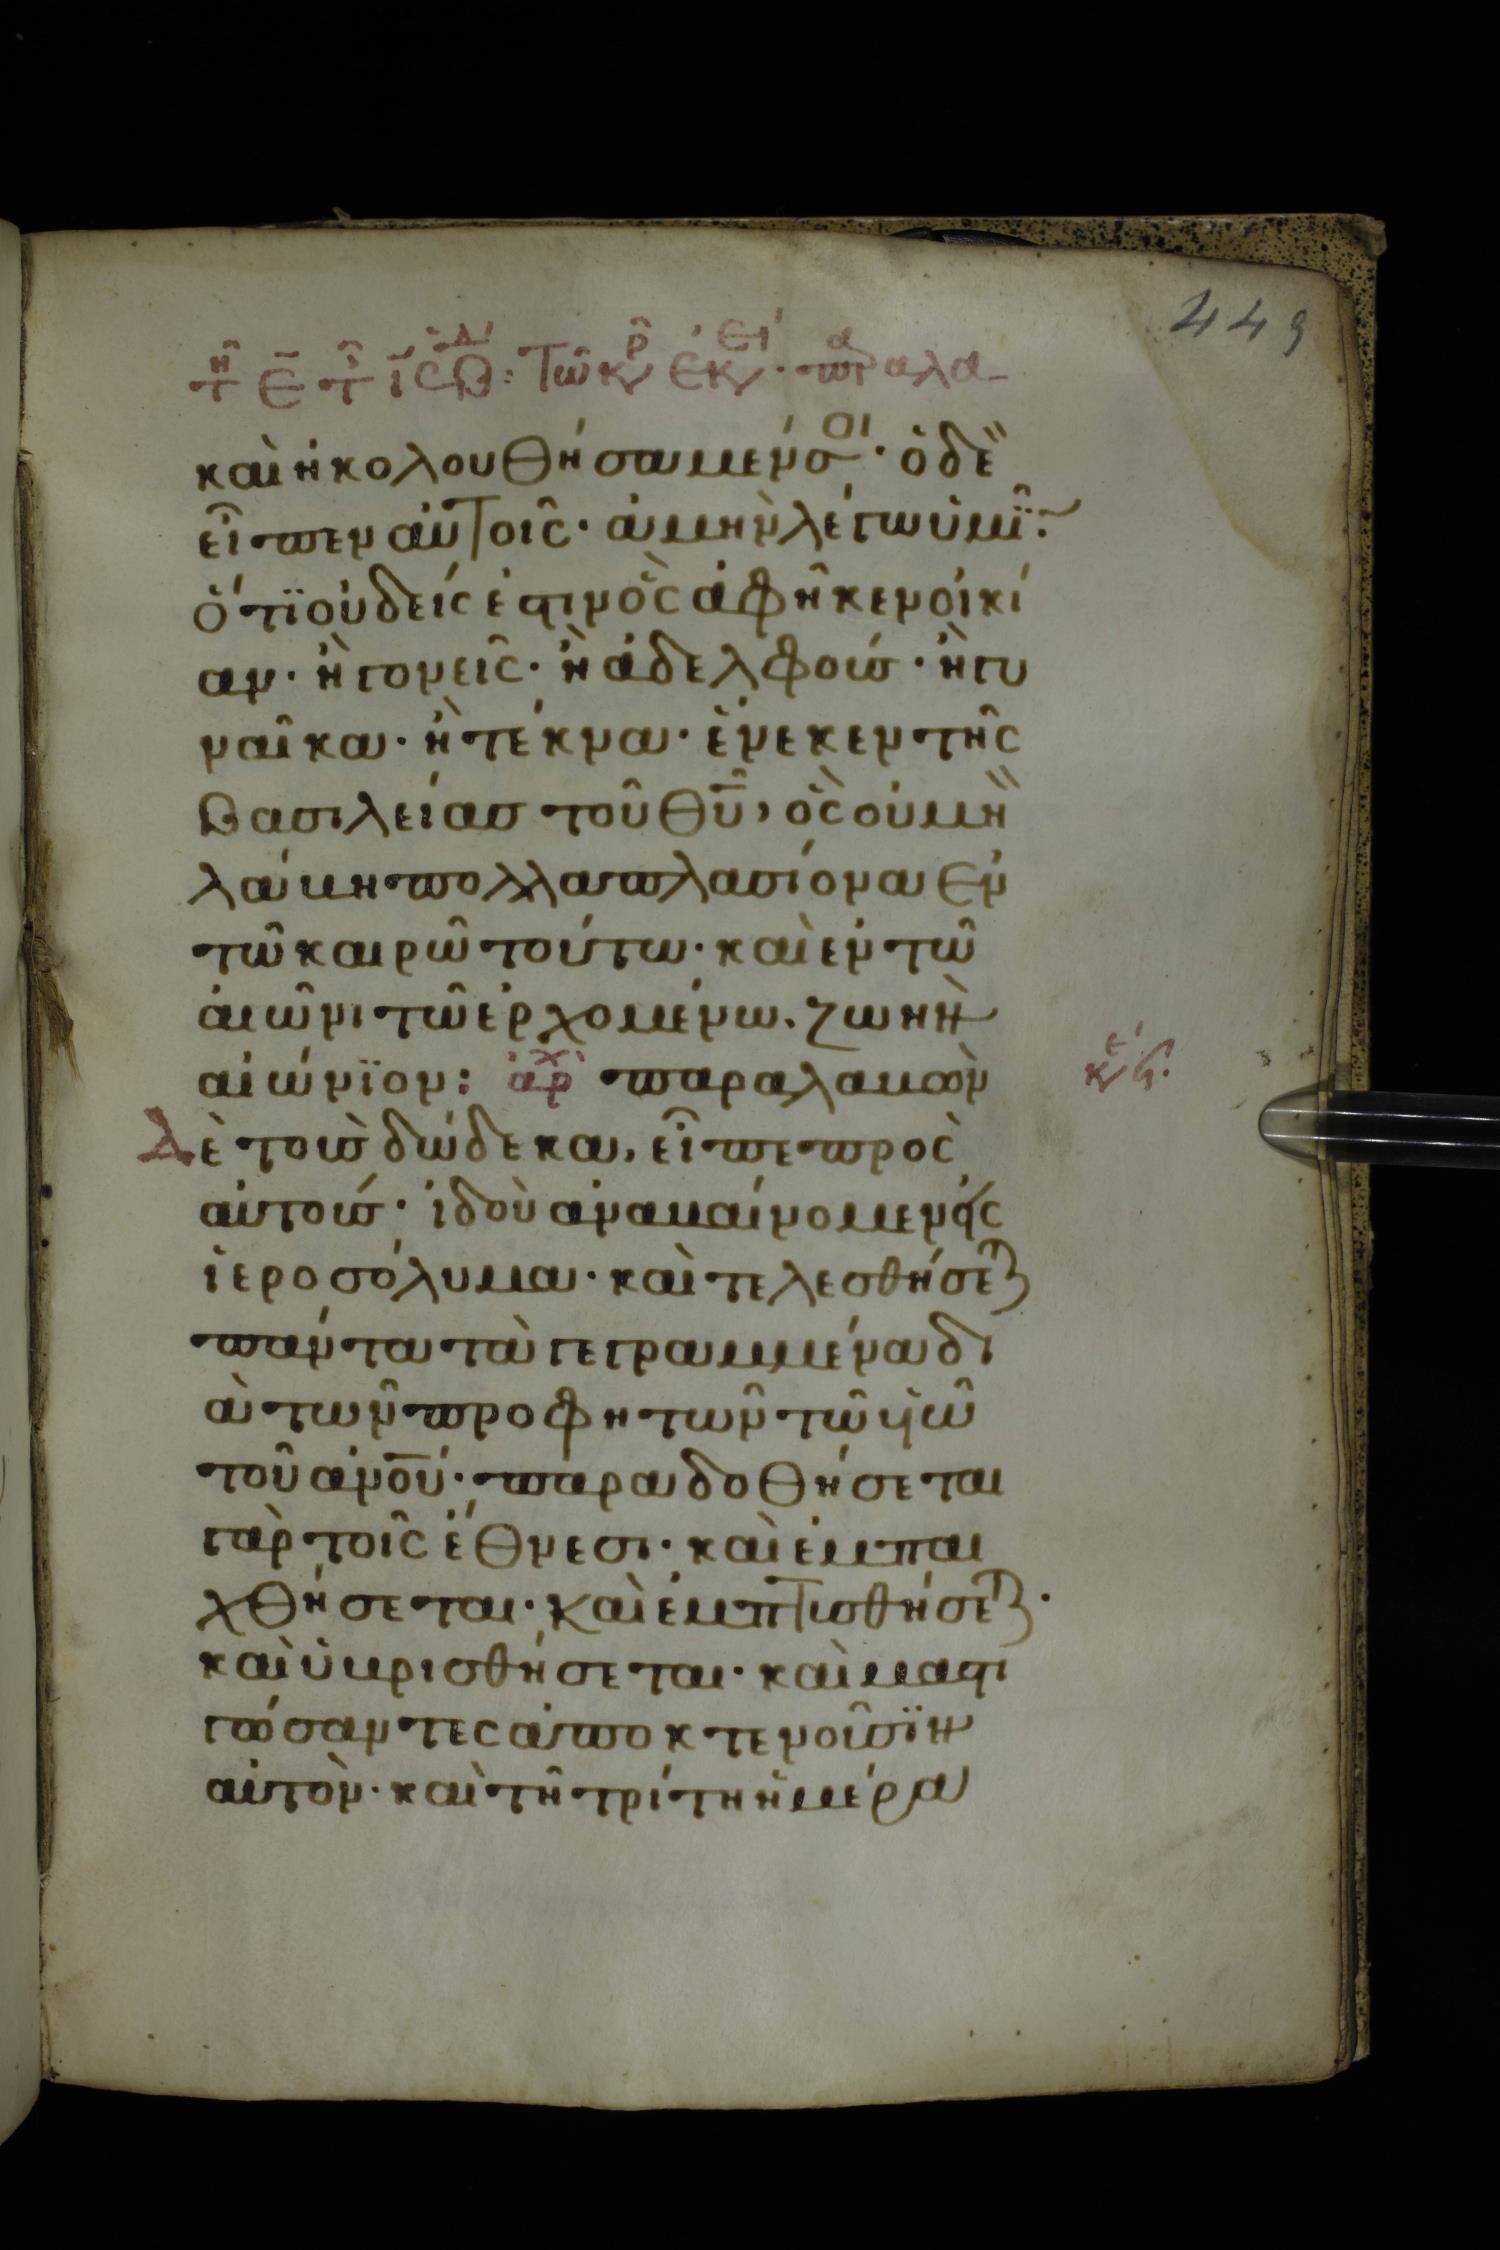 449
τῆ ε τ ι ς β: Τῶ κ ἐκ · παραλα
καὶ ἠκολουθήσαμέν σοι · ὁ δὲ
εἶπεν αὐτοῖς · ἀμὴν λέγω ὑμῖν:
ὅτϊ οὐδείς ἐστιν ὃς ἀφῆκεν οἰκί
αν · ἢ γονεῖς · ἢ ἀδελφούς · ἢ γυ
ναῖκα · ἢ τέκνα · ἕνεκεν τῆς
βασιλείας τοῦ θῦ, ὃς οὐ μὴ
λάβη πολλαπλασίονα ἐν
τῶ καιρῶ τούτω · καὶ ἐν τῶ
αἰῶνι τῶ ἐρχομένω. ζωὴν
αἰώνϊον: ἀρχ παραλαβὼν
κε ς.
Δὲ τοὺς δώδεκα, εἶπε πρὸς
αὐτούς · ἰδοὺ ἀναβαίνομεν εἰς
ἱεροσόλυμα · καὶ τελεσθήσεται
πάντα τὰ γεγραμμένα δι
ὰ τῶν προφητῶν τῶ υἱῶ
τοῦ ἀνου · παραδοθήσεται
γὰρ τοῖς ἔθνεσι · καὶ ἐμπαι
χθήσεται · καὶ ἐμπτισθήσεται ·
καὶ ὑβρισθήσεται · καὶ μαστι
γώσαντες ἀποκτενοῦσϊν
αὐτὸν · καὶ τῆ τρίτη ἡμέρα